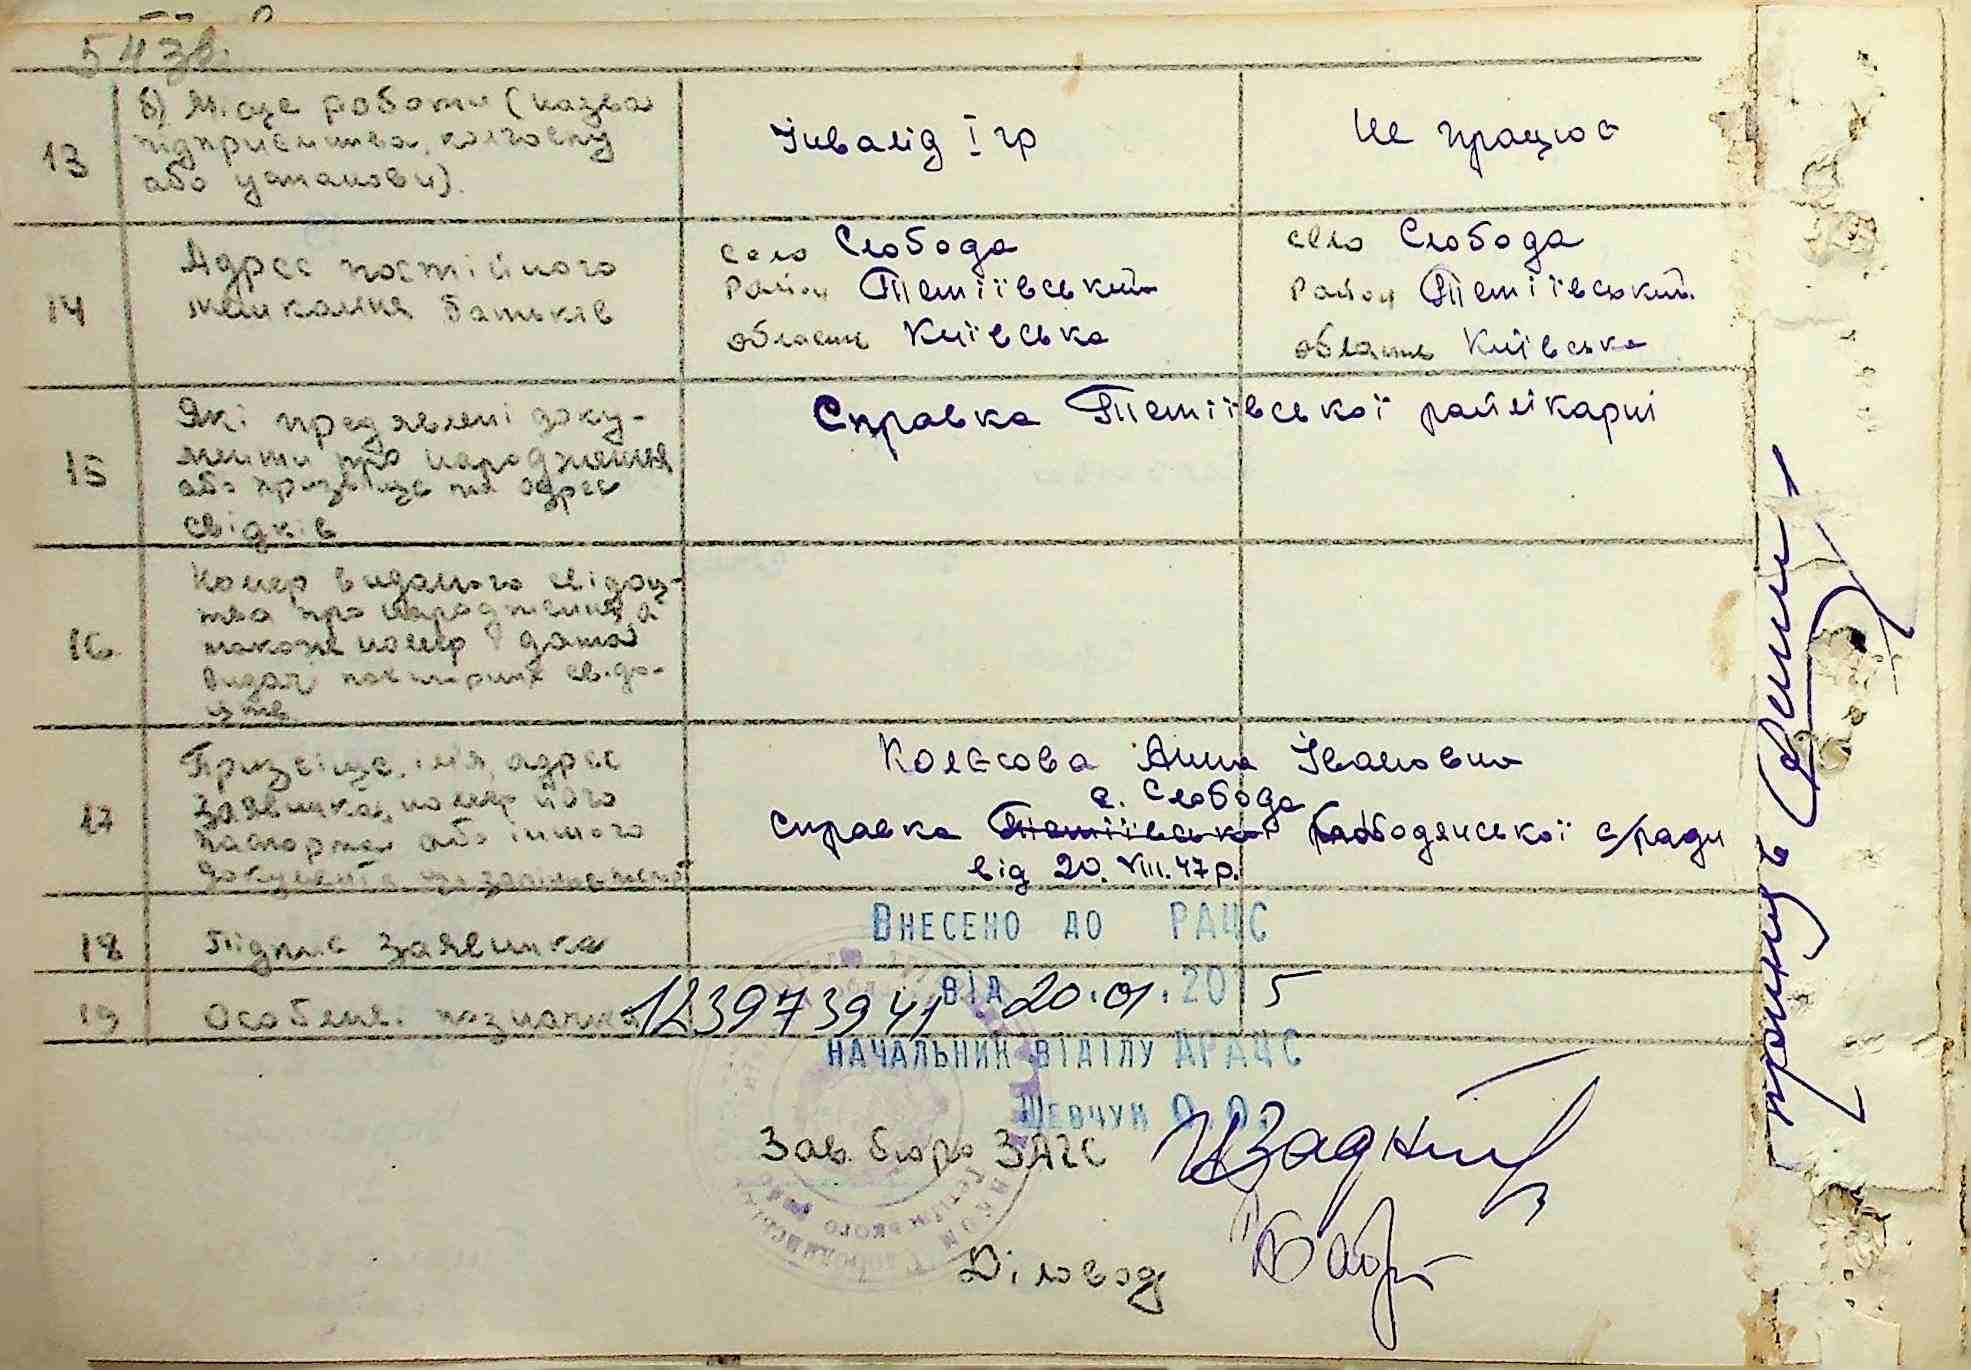 54зв.
13 в) Місце роботи (назва підприємства, колгоспу або установи). Інвалід I гр Не працює
14 Адрес постійного мешкання батьків
село Слобода село Слобода
Район Тетіївський Район Тетіївський
область Київська область Київська
15 Які предявлені доку-
менти про народження
або прізвище та адрес
свідків
Справка Тетіївської райлікарні
16 Номер виданого свідоц-
тва про народження, а
також номер і дата
видачі повторних свідо-
цтв
17 Призвіще, імя, адрес
заявника, номер його
паспорта або іншого
документа
Колєсова Анна Івановна
с. Слобода
Справка Тетіївської Слободянської с/ради
від 20.VIII.47р.
18 Підпис заявника
ВНЕСЕНО ДО РАЦС
19 Особливі позначки 123973941 ВІД 20.01.2015
НАЧАЛЬНИК ВІДІЛУ ДРАЦС
ШЕВЧУК О.О.
Зав. бюро ЗАГС
Діловод